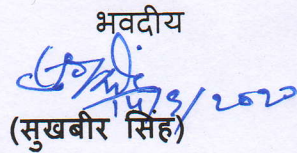 भवदीय
14/9/2020
(सुखबीर सिंह)